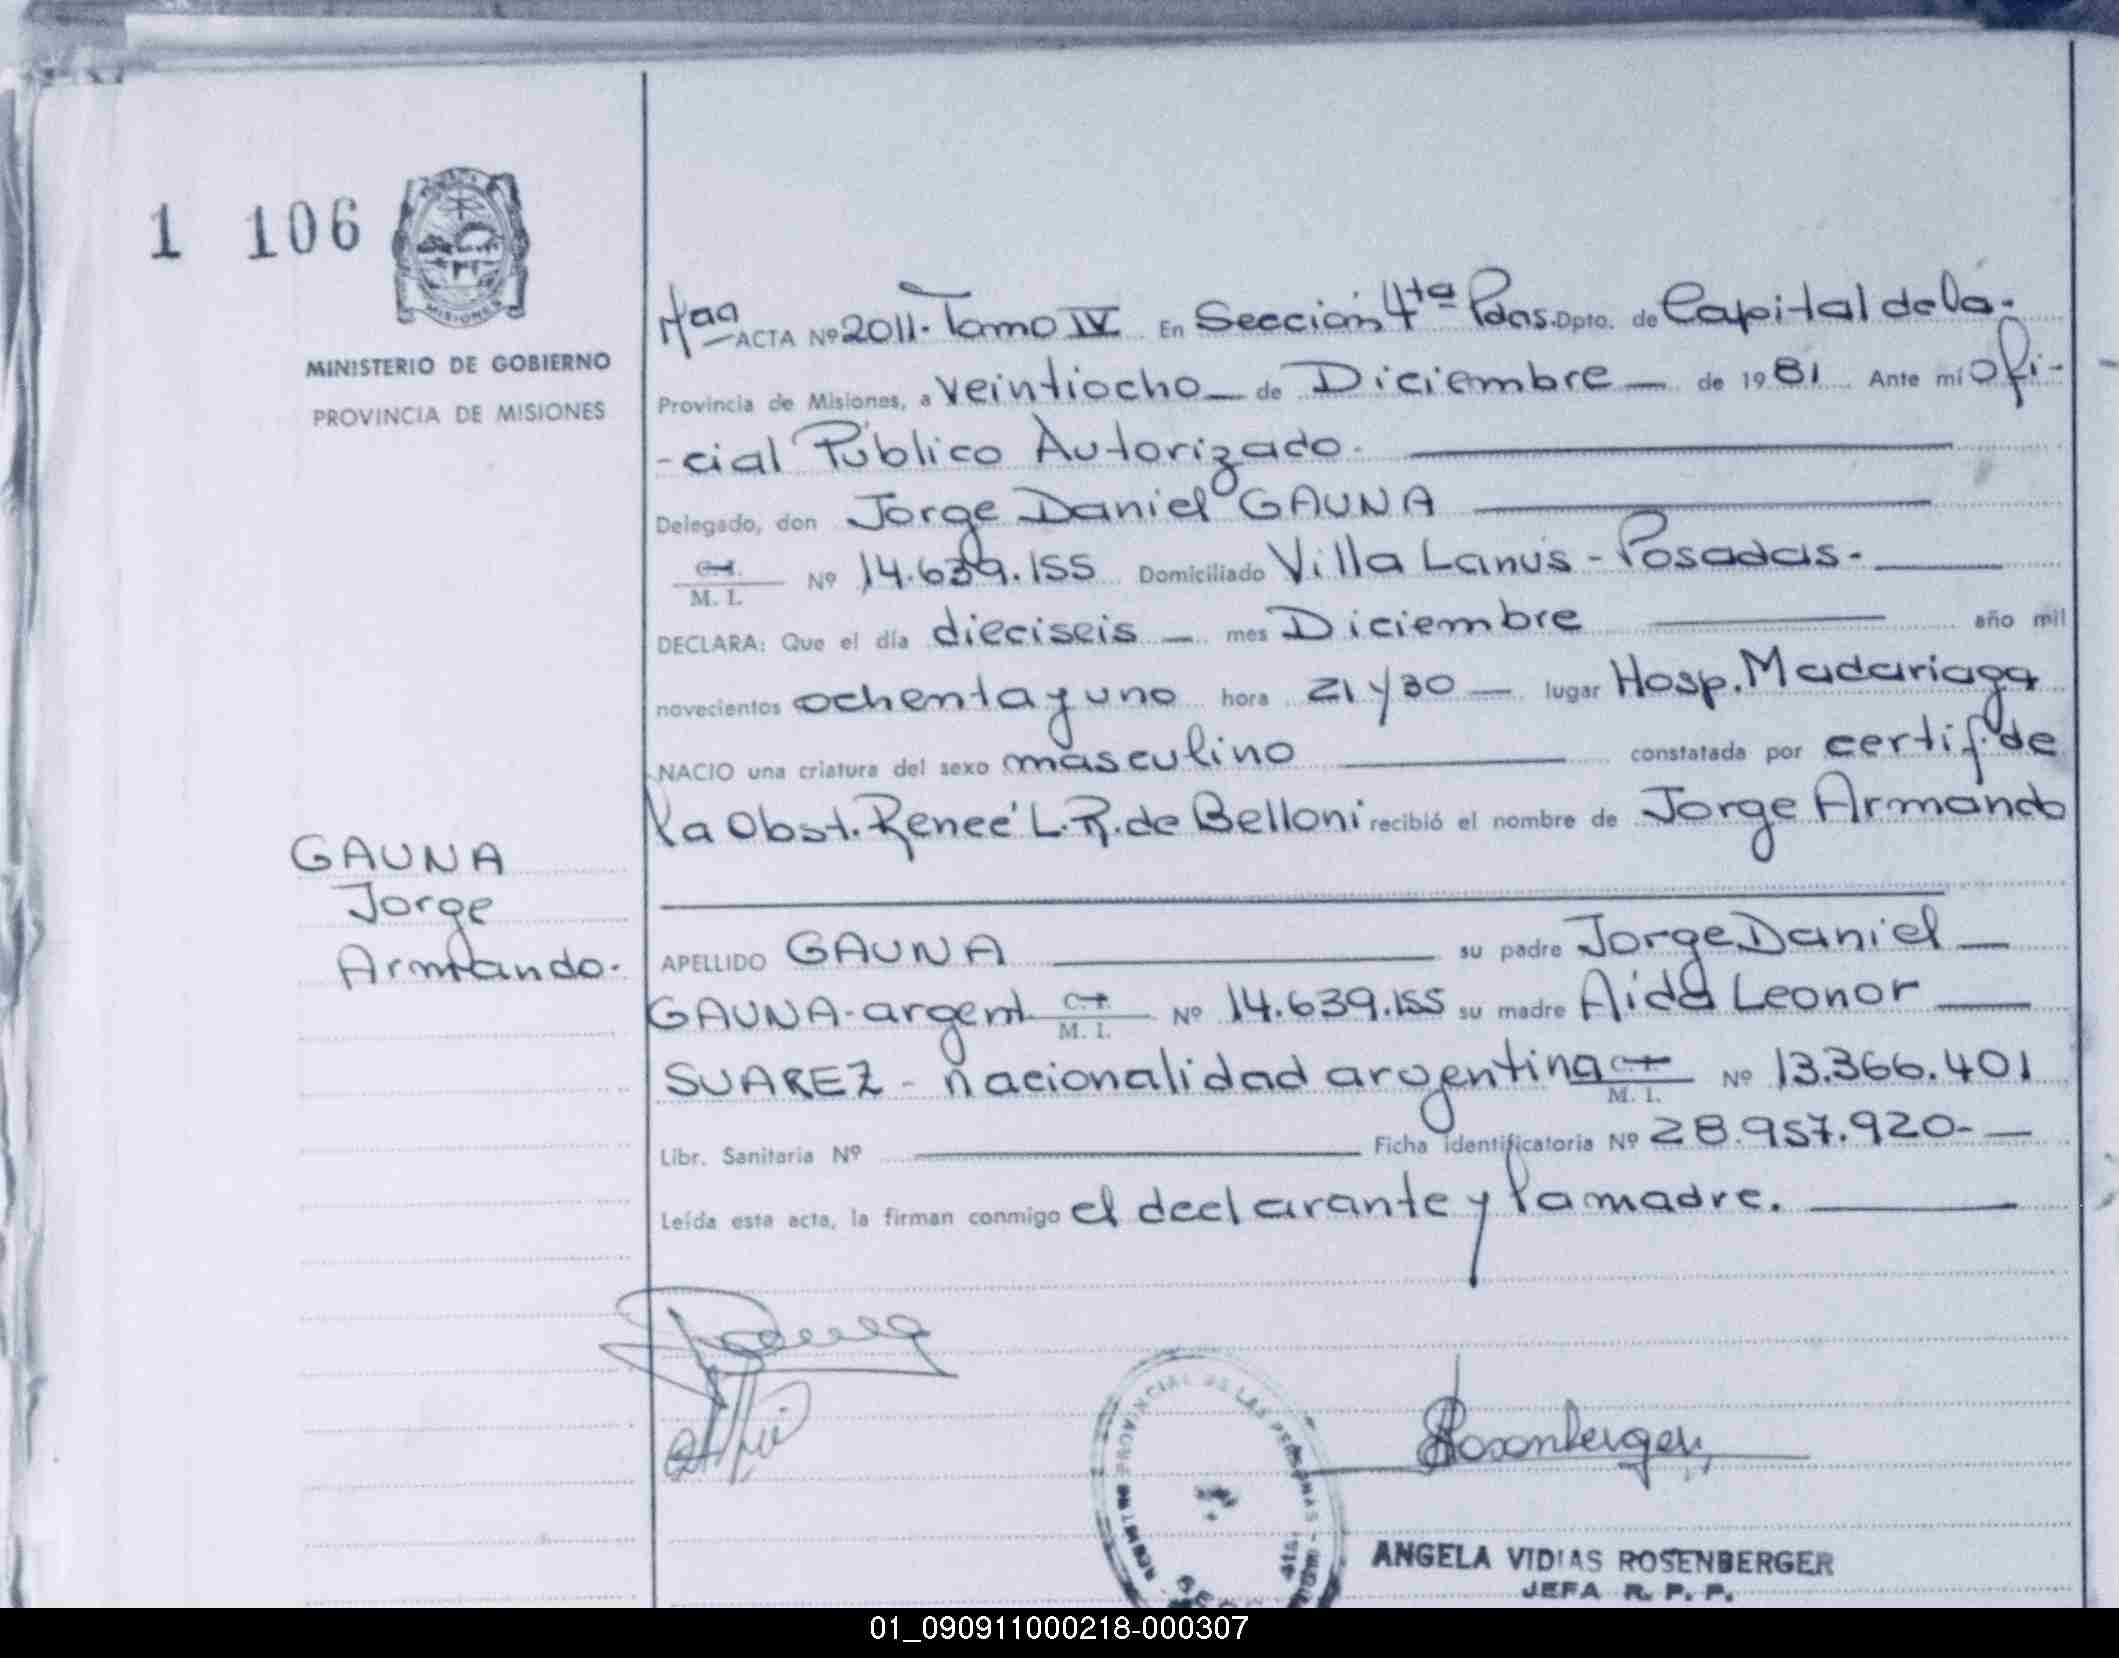 1 106
MISIONES
MINISTERIO DE GOBIERNO
PROVINCIA DE MISIONES
GAUNA
Jorge
Armando.
ACTA Nº 2011. Tomo IV En Sección 4ta Pdas. Dpto. de Capital de la.
Provincia de Misiones, a veintiocho de Diciembre de 1981 Ante mí ofi-
-cial Público Autorizado.
Delegado, don Jorge Daniel GAUNA
C.I. Nº 14.639.155 Domiciliado Villa Lanús - Posadas-
M. I.
DECLARA: Que el día dieciseis mes Diciembre año mil
novecientos ochenta y uno hora 21 y 30 lugar Hosp. Madariaga
NACIO una criatura del sexo masculino constatada por certif. de
la Obst. Reneé L. R. de Belloni recibió el nombre de Jorge Armando
APELLIDO GAUNA su padre Jorge Daniel
GAUNA-argent C.I. Nº 14.639.155 su madre Aida Leonor
M. I.
SUAREZ - nacionalidad argentina C.I. Nº 13.366.401
M. I.
Libr. Sanitaria Nº Ficha identificatoria Nº 28.957.920-
Leída esta acta, la firman conmigo el declarante y la madre.
Rosenberger
PROVINCIAL DE LAS PERSONAS
ANGELA VIDIAS ROSENBERGER
JEFA R. P. P.
01_090911000218-000307